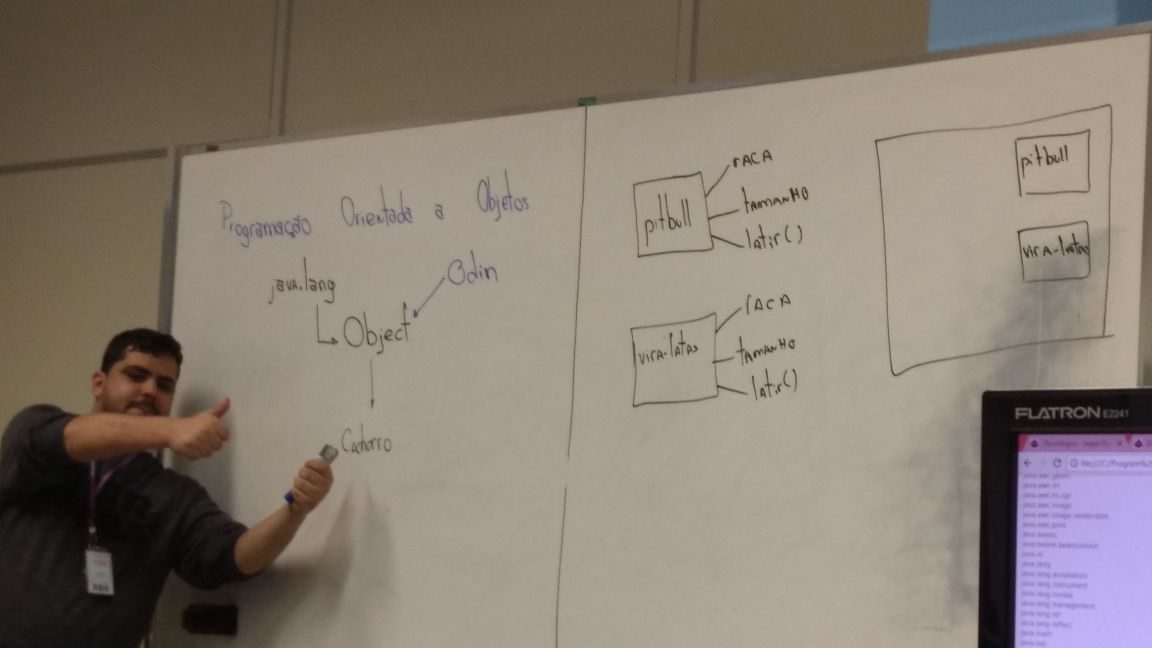 Programação Orientada a Objetos
java.lang
Odin
Object
Cachorro
pitbull
rACA
tAMANHO
latir()
vira-latas
rACA
tAMANHO
latir()
pitbull
vira-latas
FLATRON E2241
java.awt.im
java.awt.im.spi
java.awt.image
java.awt.image.renderable
java.awt.print
java.beans
java.beans.beancontext
java.io
java.lang
java.lang.annotation
java.lang.instrument
java.lang.invoke
java.lang.management
java.lang.ref
java.lang.reflect
java.math
java.net